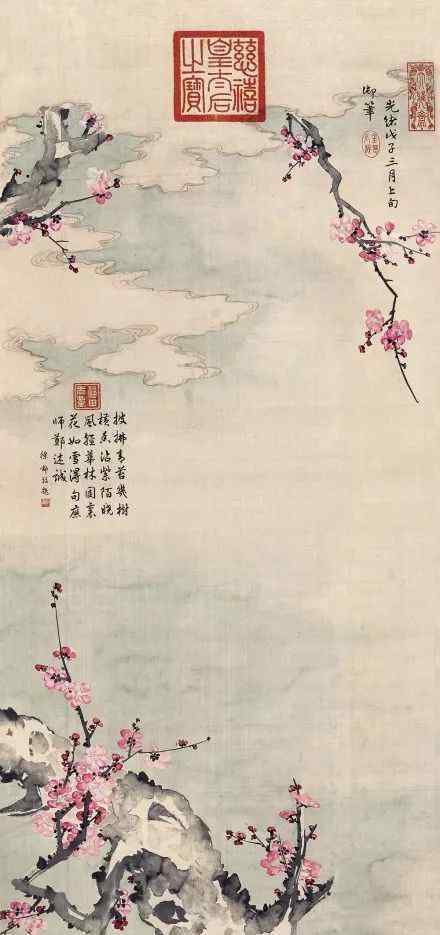 慈禧
皇太后
之寶
光緒戊子三月上旬
御筆
披拂青苔幾樹
橫香沾紫陌晚
風輕華林園裏
花如雪得句應
師鄭述誠
徐郙敬題